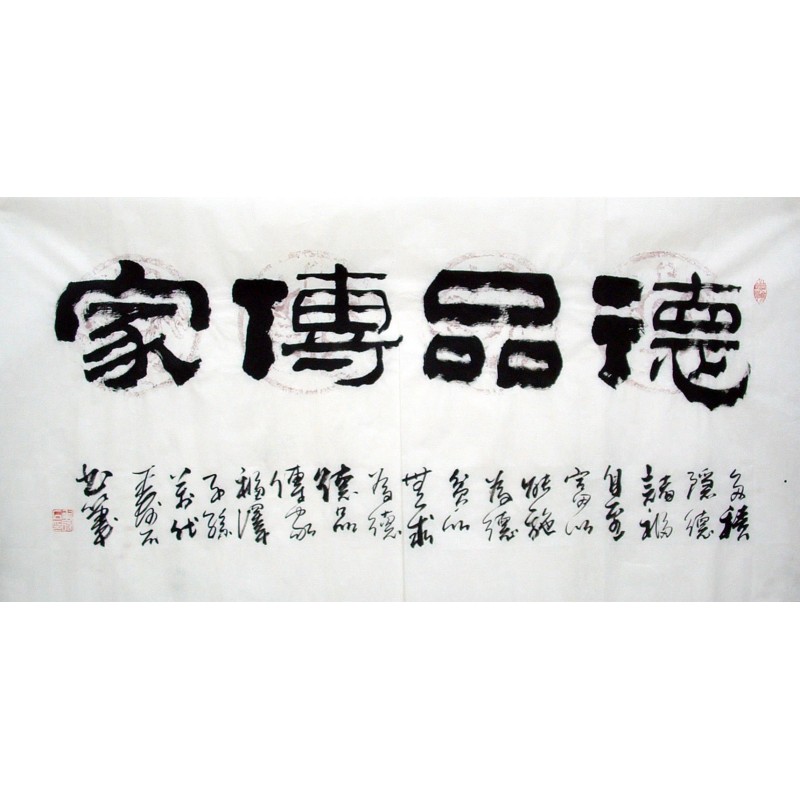 德品傳家
多積
隱德
諸福
自至
富以
能施
為德
貧以
無求
為德
德品
傳家
福澤
子孫
萬代